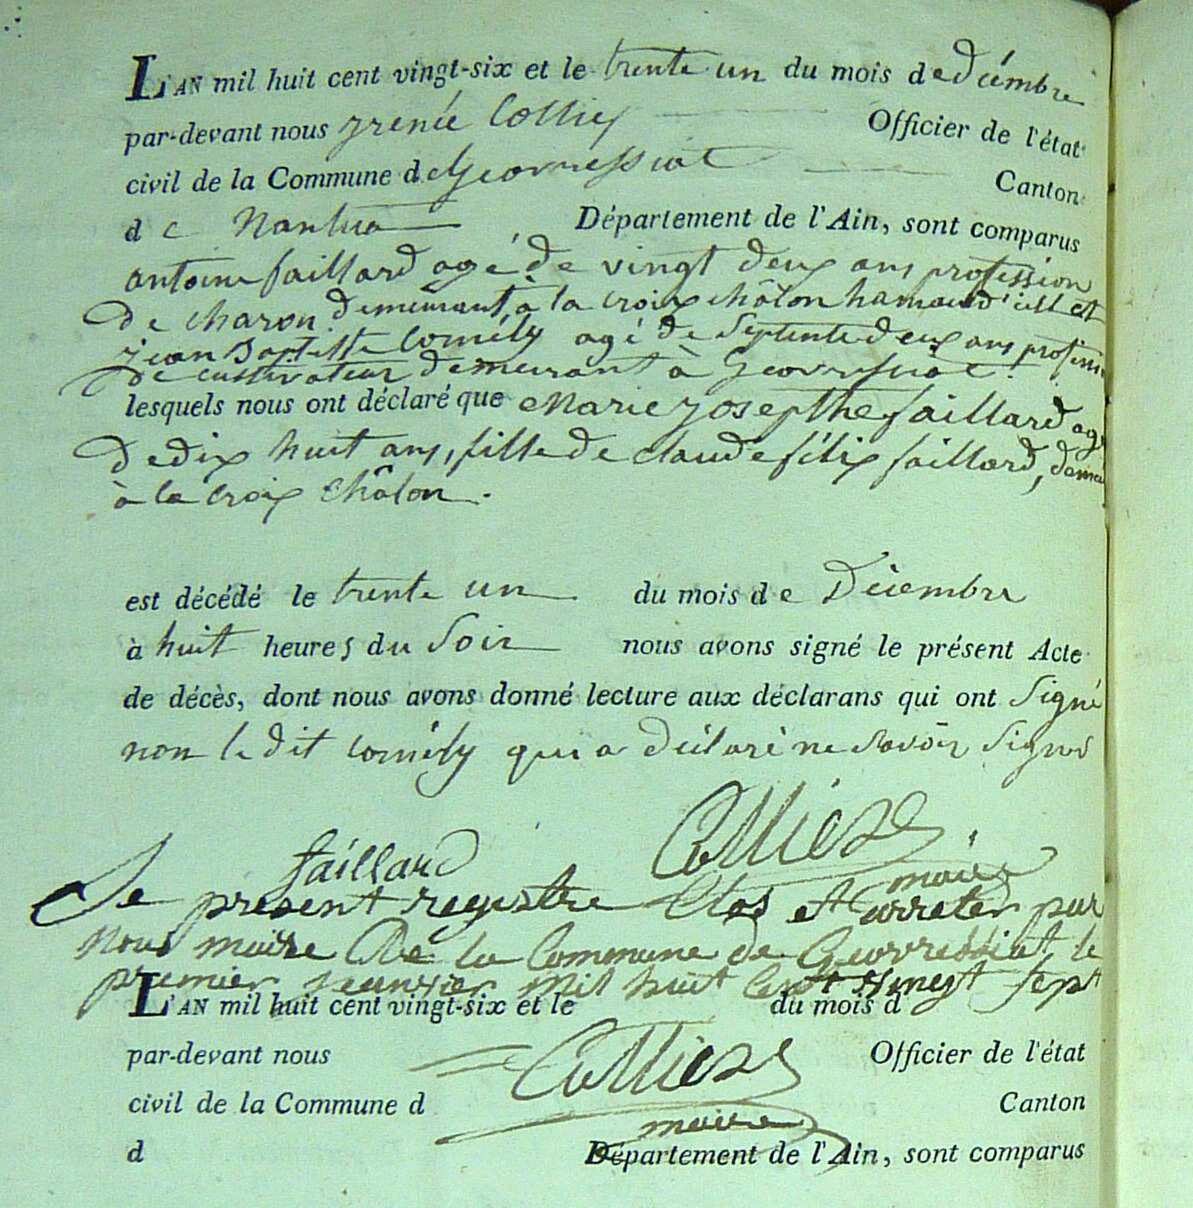 L'AN mil huit cent vingt-six et le trente un du mois de décembre
par-devant nous yrenée Colliex Officier de l'état
civil de la Commune de Geovressiat Canton
de Nantua Département de l'Ain, sont comparus
antoine faillard agé de vingt deux ans profession
de charon demeurant, à la croix châlon hamaud'
jean Baptiste Comély agé de Septente deux ans profession
de cultivateur demeurant à Geovressiat.
lesquels nous ont déclaré que Marie yosepthe faillard agé
de dix huit ans, fille de claude félix faillard,
à la croix châlon.
est décédé le trente un du mois de Décembre
à huit heures du Soir nous avons signé le présent Acte
de décès, dont nous avons donné lecture aux déclarans qui ont Signé
non le dit Comély qui a déclaré ne savoir Signé
Colliex
faillard maire
Le present registre Clos et arreter par
Nous maire De la Commune de Geovressiat le
premier jeanvier mil huit Cent vingt sept
L'AN mil huit cent vingt-six et le du mois d
par-devant nous Colliex Officier de l'état
civil de la Commune d Canton
maire
d Département de l'Ain, sont comparus